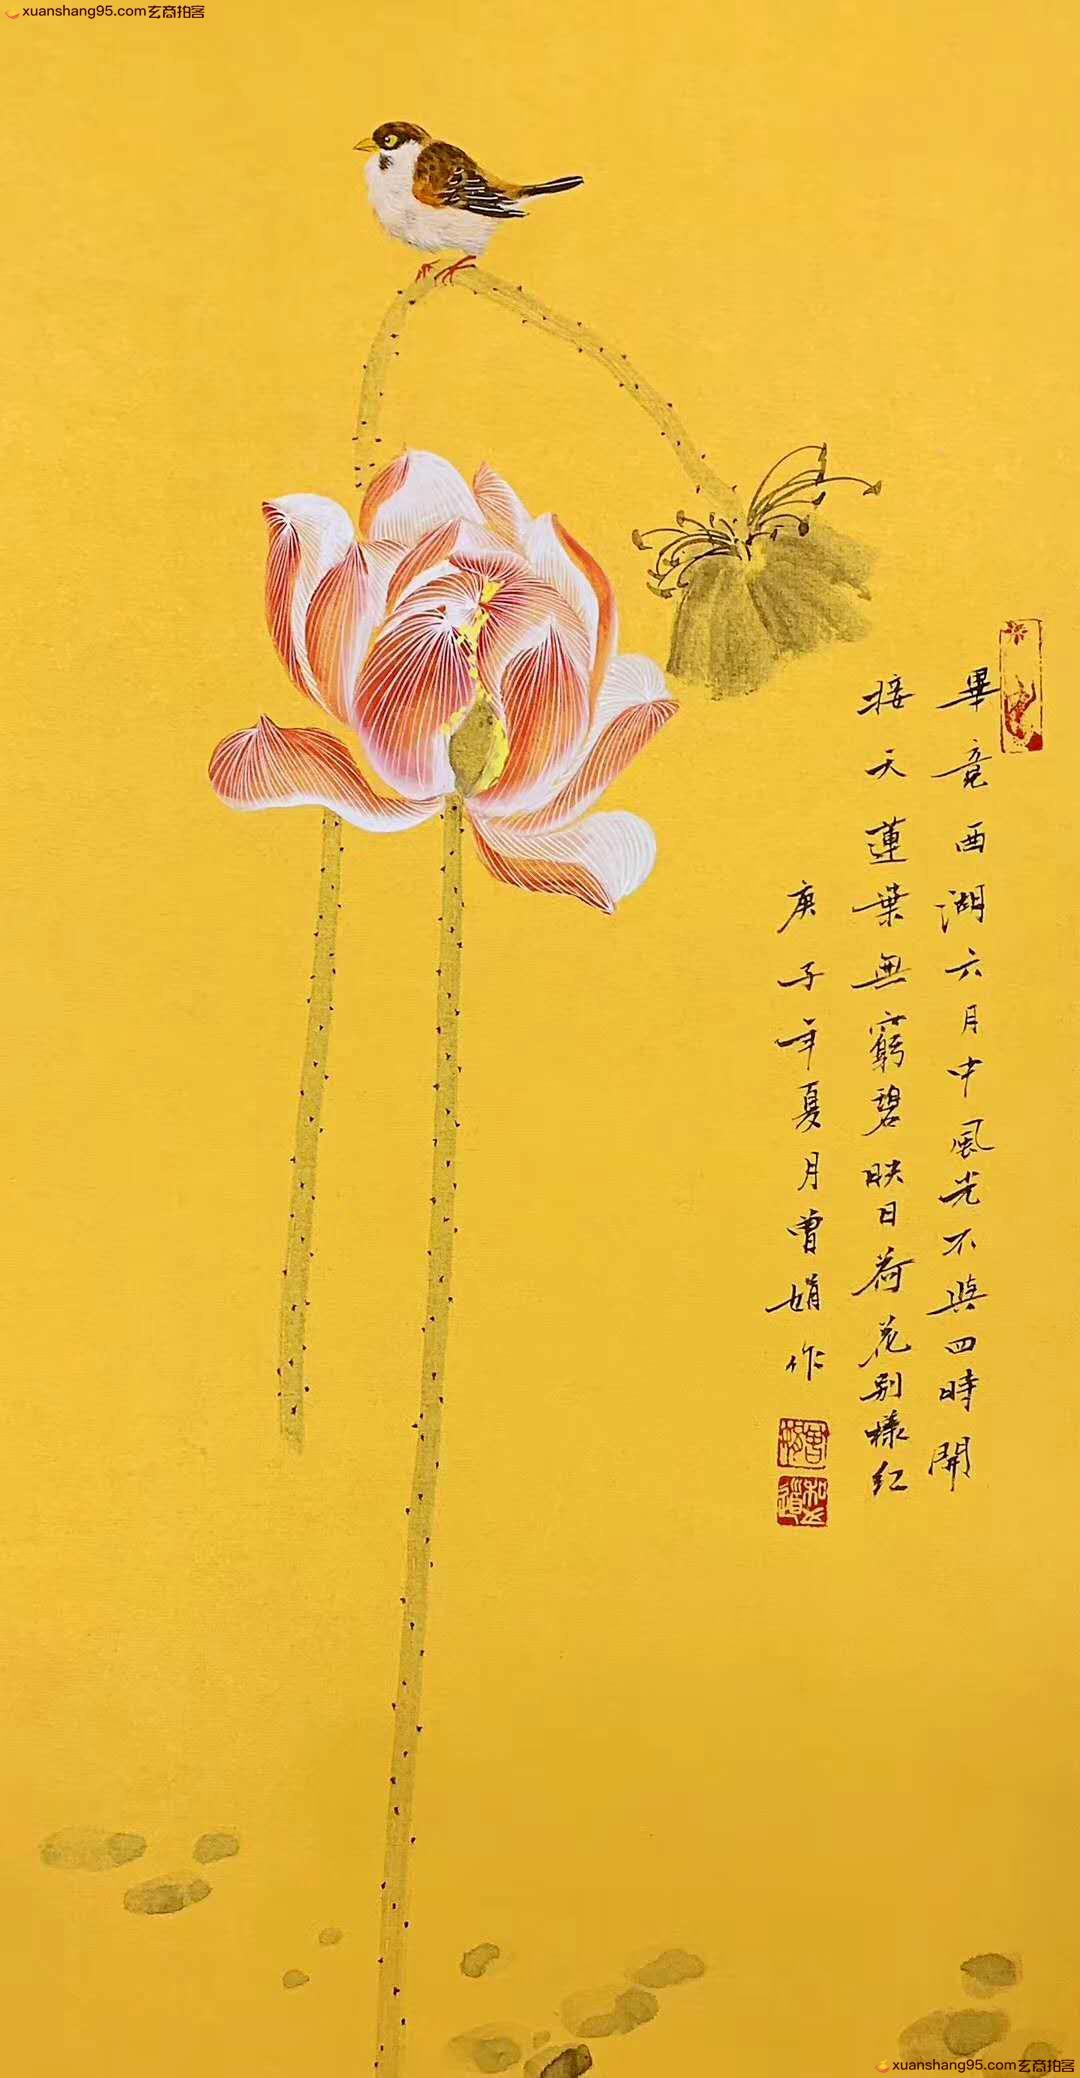 xuanshang95.com玄商拍客
畢竟西湖六月中風光不與四時開
接天蓮葉無窮碧映日荷花别樣紅
庚子年夏月曾娟作
曾娟
xuanshang95.com玄商拍客